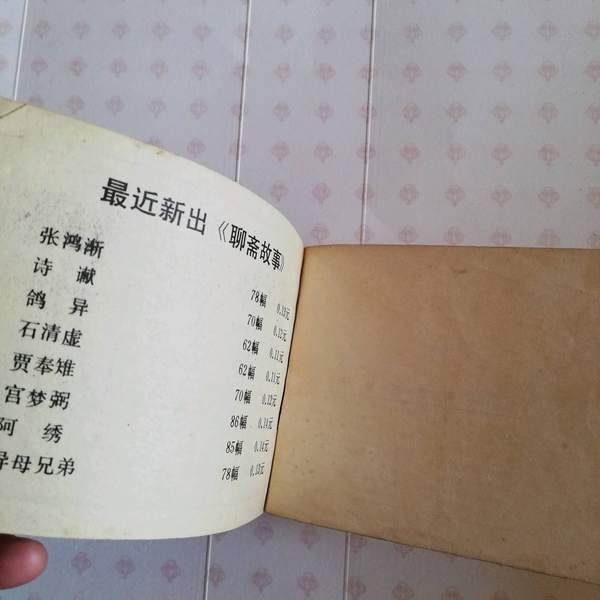 最近新出《聊斋故事》
张鸿渐 78幅 0.13元
诗谳 70幅 0.12元
鸽异 62幅 0.11元
石清虚 62幅 0.11元
贾奉雉 70幅 0.12元
宫梦弼 86幅 0.14元
阿绣 85幅 0.14元
异母兄弟 78幅 0.13元